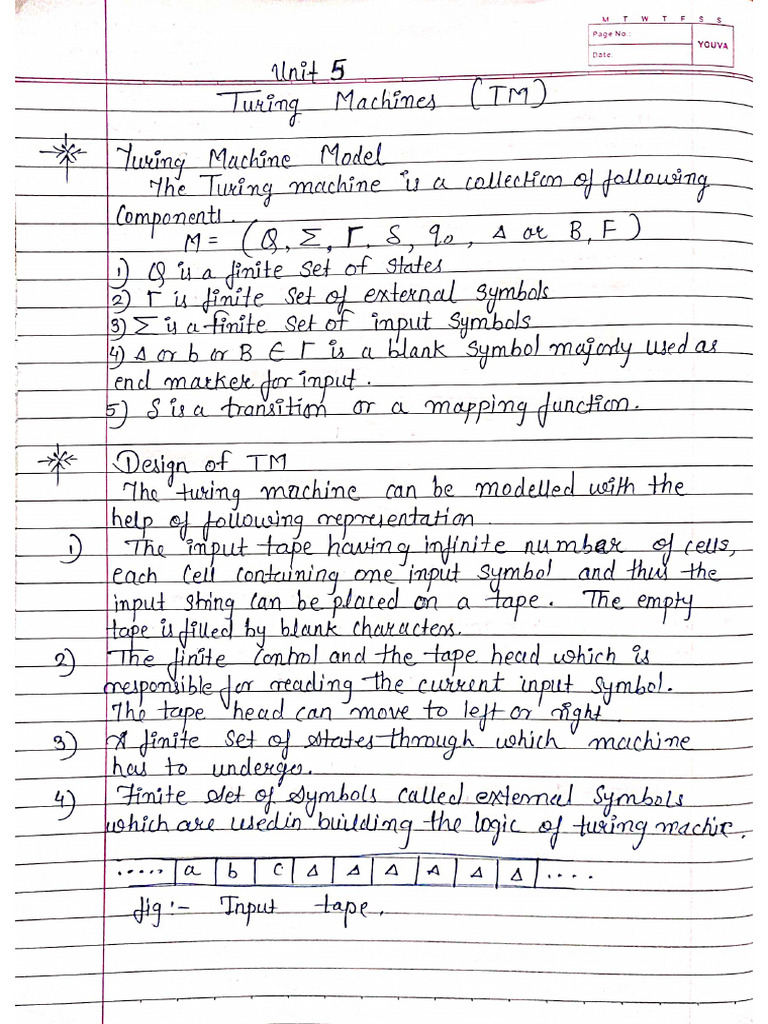 M T W T F S S
Page No.:
YOUVA
Date:
Unit 5
Turing Machines (TM)
Turing Machine Model
The Turing machine is a collection of following
Components.
M = (Q, Σ, Γ, δ, q₀, Δ or B, F)
1) Q is a finite set of states
2) Γ is finite set of external symbols
3) Σ is a finite set of input symbols
4) Δ or b or B ∈ Γ is a blank symbol majorly used as
end marker for input.
5) δ is a transition or a mapping function.
Design of TM
The turing machine can be modelled with the
help of following representation.
1) The input tape having infinite number of cells,
each cell containing one input symbol and thus the
input string can be placed on a tape. The empty
tape is filled by blank characters.
2) The finite control and the tape head which is
responsible for reading the current input symbol.
The tape head can move to left or right.
3) A finite set of states through which machine
has to undergo.
4) Finite set of symbols called external symbols
which are used in building the logic of turing machine.
..... | a | b | c | Δ | Δ | Δ | Δ | Δ | Δ | ....
fig:- Input tape.